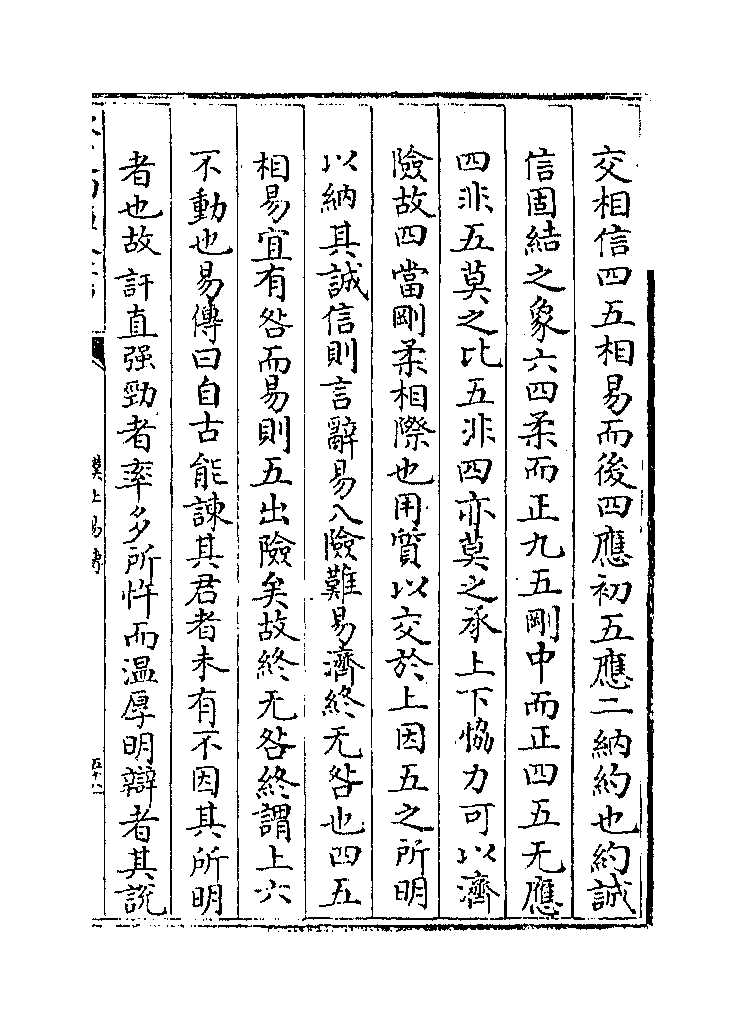 交相信四五相易而後四應初五應二納約也約誠
信固結之象六四柔而正九五剛中而正四五无應
四非五莫之比五非四亦莫之承上下恊力可以濟
險故四當剛柔相際也用質以交於上因五之所明
以納其誠信則言辭易入險難易濟終无咎也四五
相易宜有咎而易則五出險矣故終无咎終謂上六
不動也易傳曰自古能諫其君者未有不因其所明
者也故訐直强勁者率多所忤而温厚明辯者其說
漢上易傳